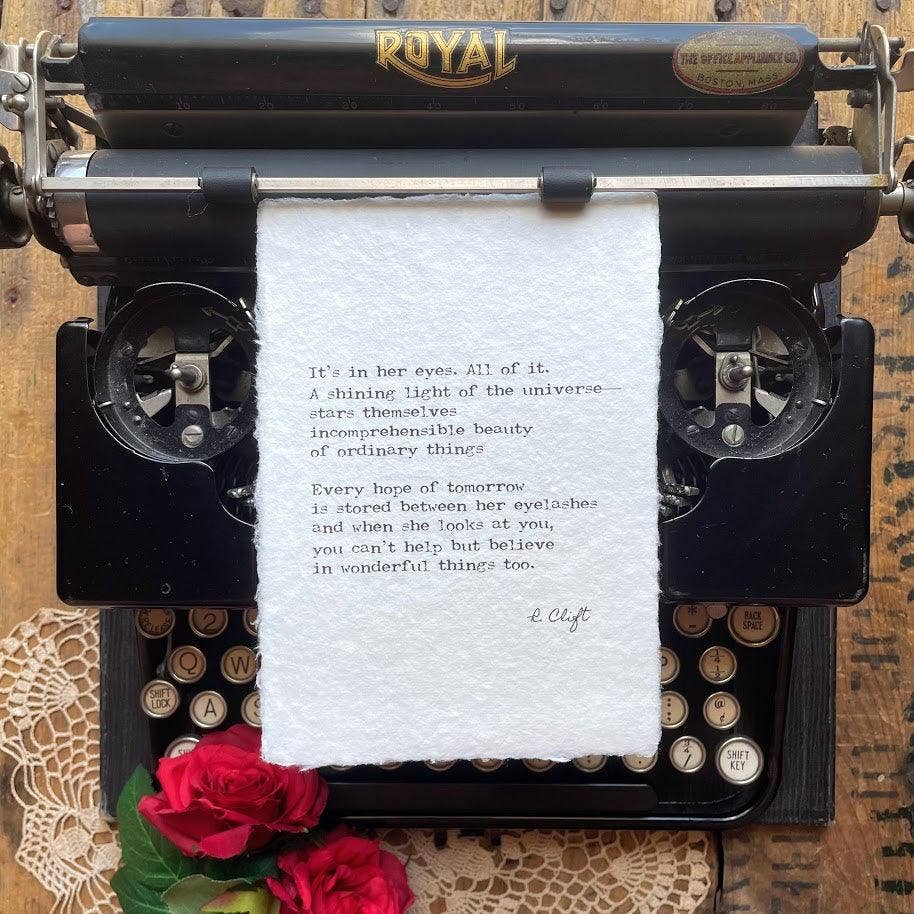 ROYAL
THE OFFICE APPLIANCE CO.
BOSTON, MASS.
10 20 30 40 50 60 70 80
It's in her eyes. All of it.
A shining light of the universe—
stars themselves
incomprehensible beauty
of ordinary things
Every hope of tomorrow
is stored between her eyelashes
and when she looks at you,
you can't help but believe
in wonderful things too.
R. Clift
2
*
BACK SPACE
Q W
SHIFT LOCK
A S
@ ¢
SHIFT KEY